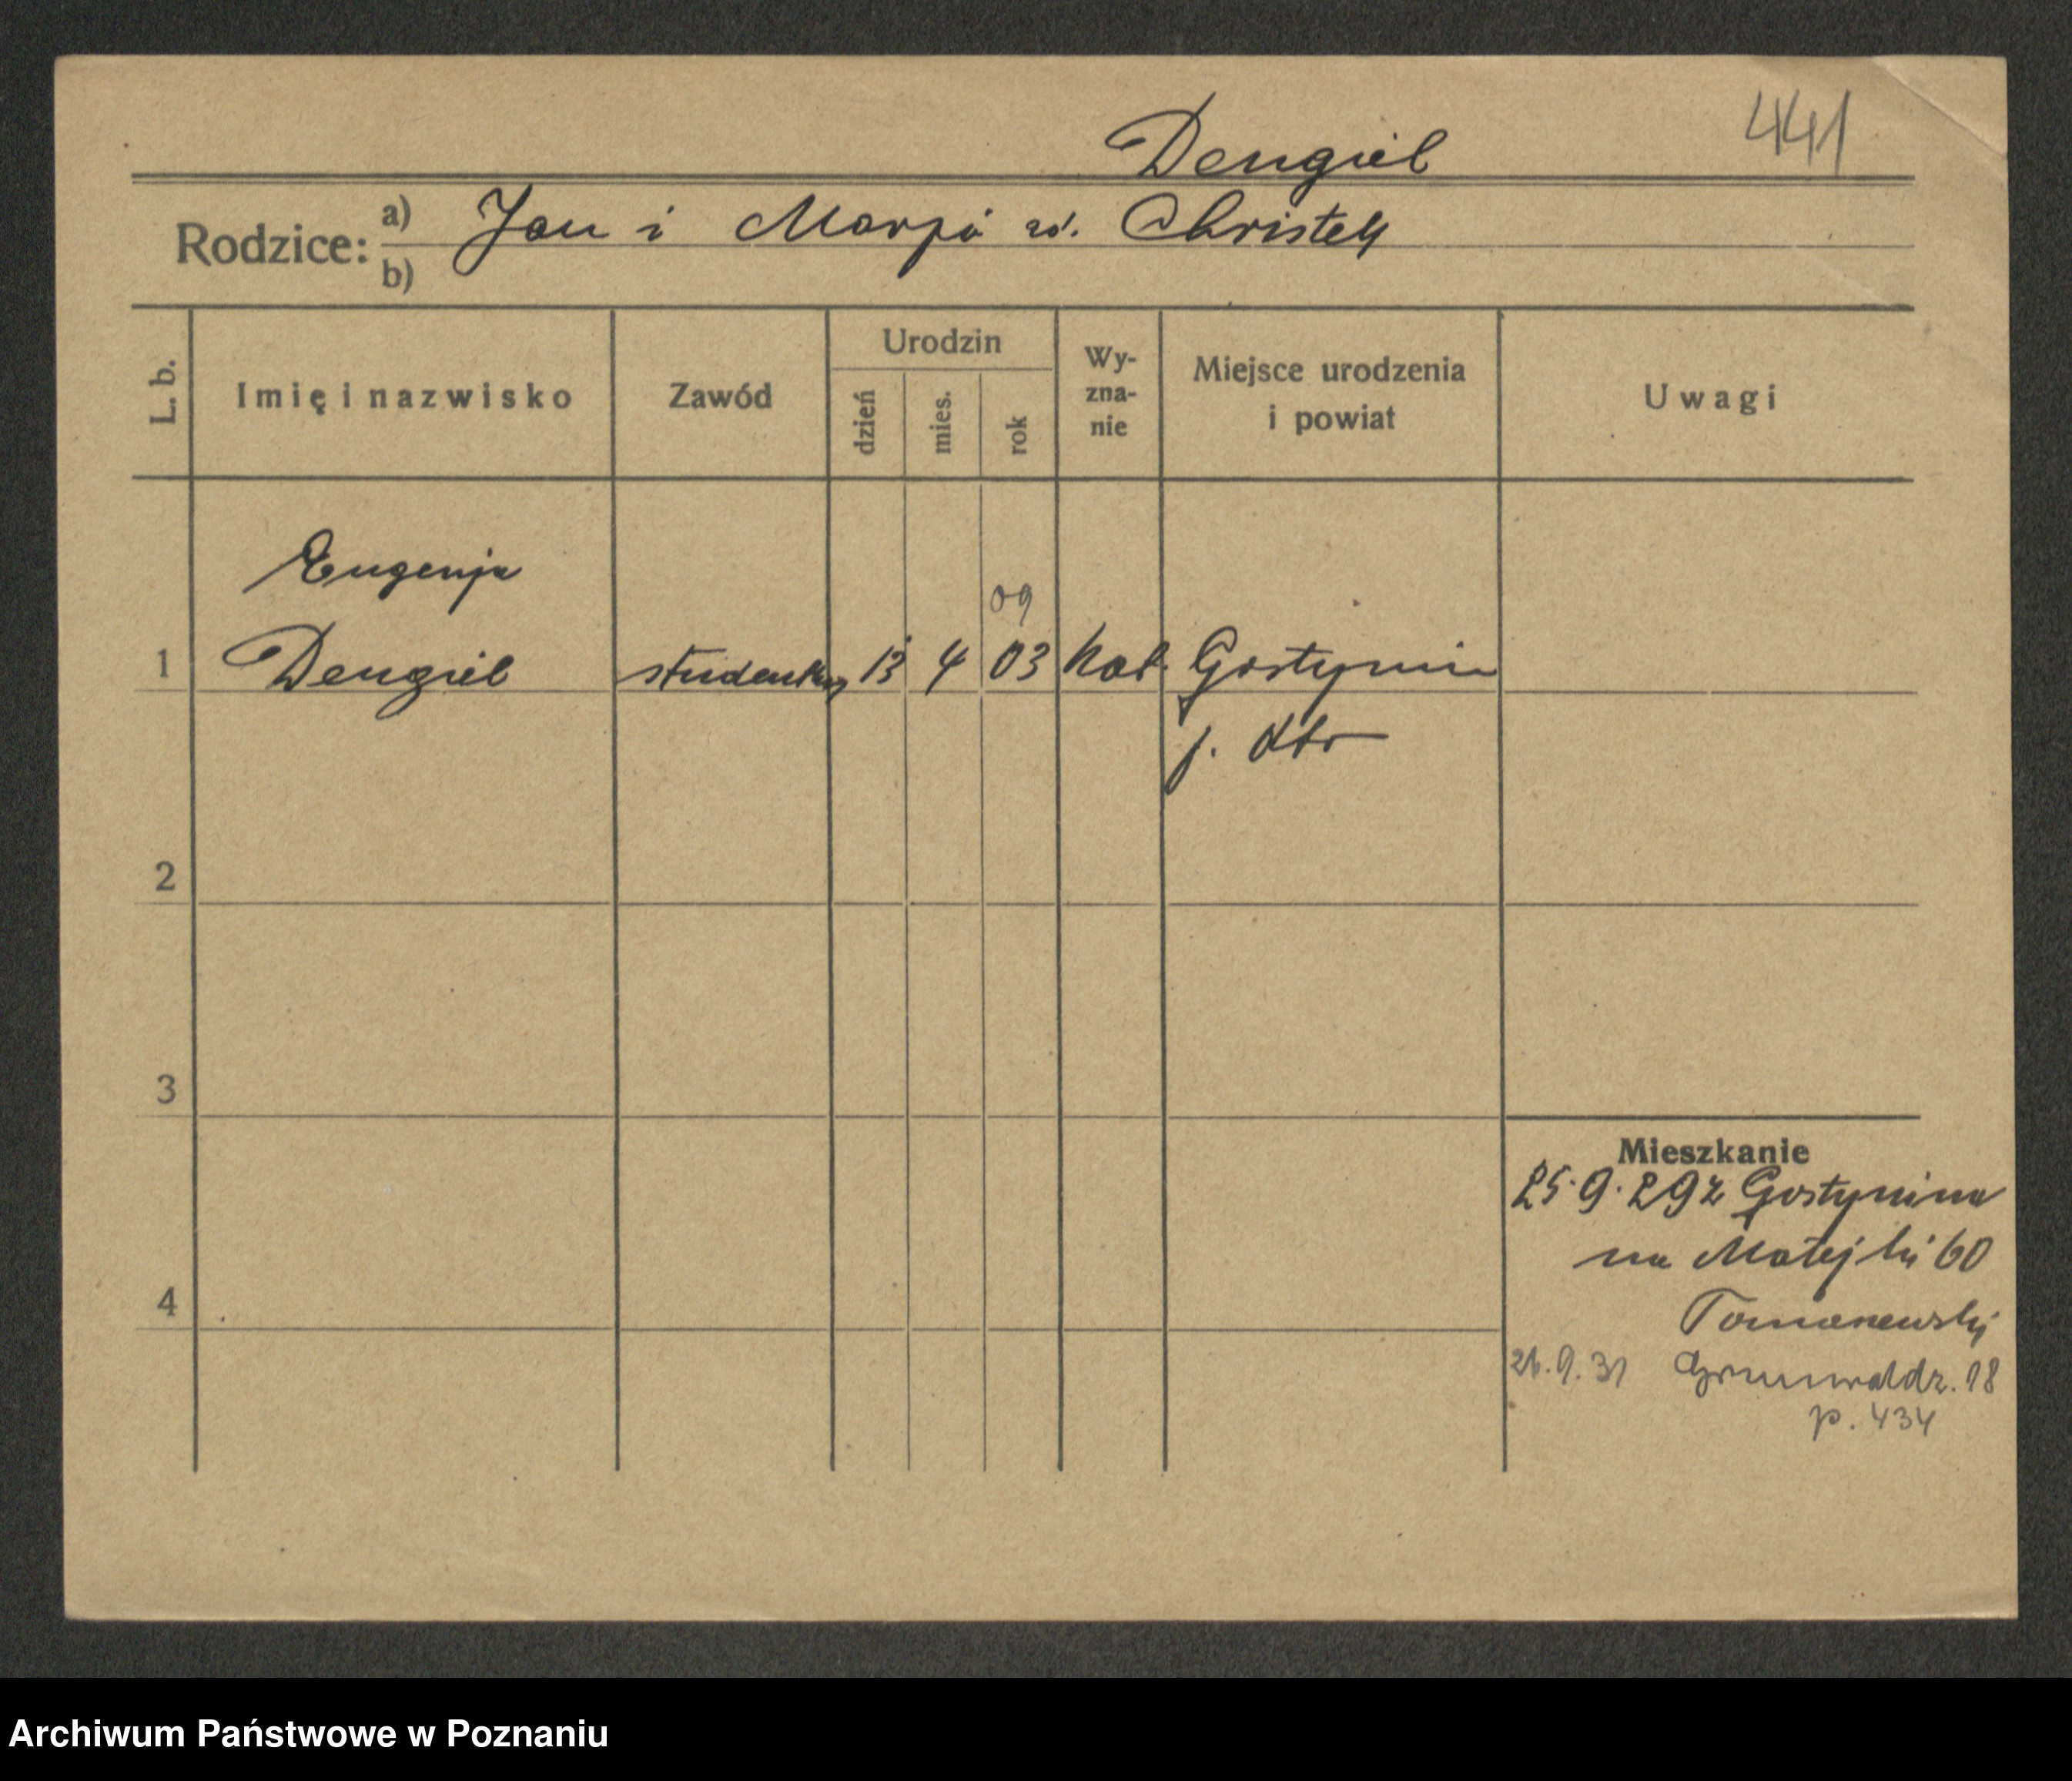 Dengiel 441
Rodzice: a) Jan i Marja zd. Christek
b)
L. b. Imię i nazwisko Zawód Urodzin dzień mies. rok Wy-zna-nie Miejsce urodzenia i powiat Uwagi
Eugenja
09
1 Dengiel studentka 13 4 03 kat. Gostynin
p. dto
2
3
Mieszkanie
25.9.29 z Gostynina
na Matejki 60
4 Tomanewski
26.9.31 Grunwaldz. 18
p. 434
Archiwum Państwowe w Poznaniu